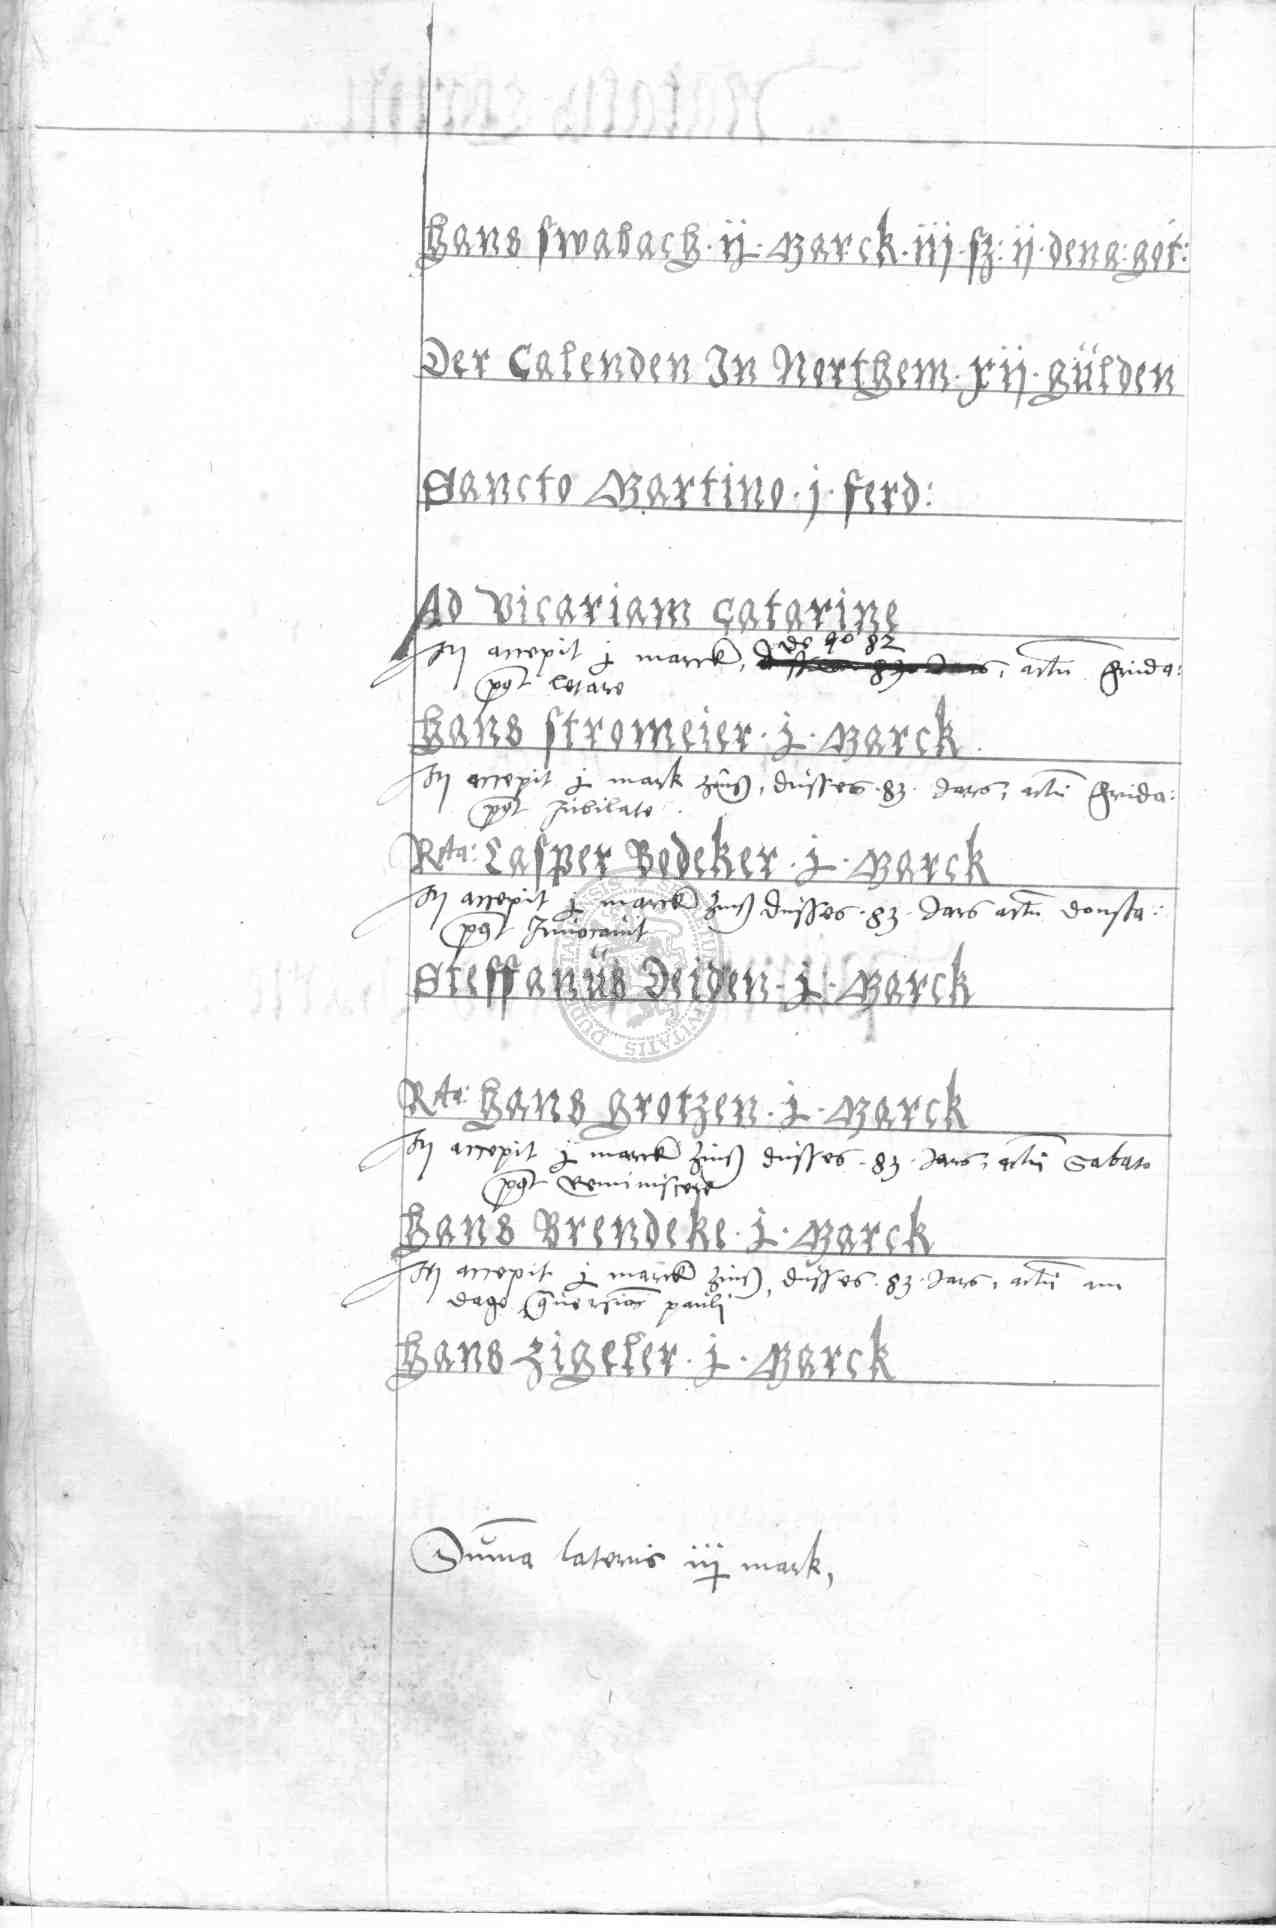 Hans swabach · ij · Marck · iij · sz: ij · dena: got:
Der Calenden In Northem · xij · gülden
Sancto Martino · j · ferd:
Ad vicariam Catarine
accepit j marck, de ao 82 actū Frida:
post Letare
Hans stromeier · j · Marck
accepit j mark zinß, dusses · 83 · Jars, actū Frida:
post Jubilate
Rta: Casper Bedeker · j · Marck
accepit j marck zinß dusses · 83 · Jars actū donsta:
post Invocavit
Steffanüs Deiden · j · Marck
Rta: Hans Grotzen · j · Marck
accepit j marck zinß dusses · 83 · Jars, actū Sabato
post Reminiscere
Hans Brendeke · j · Marck
accepit j marck zinß, dusses · 83 · Jars, actū am
dage Conversiois pauli
Hans Zigeler · j · Marck
Suma lateris iij mark,